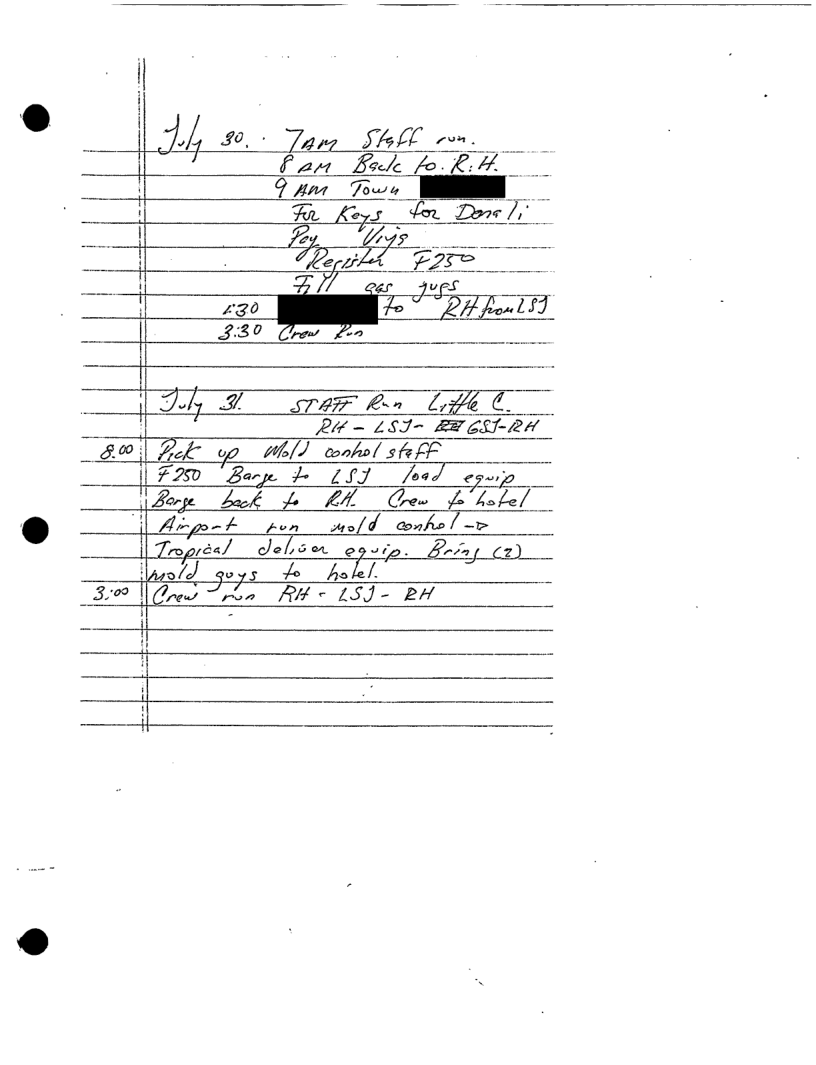 July 30. 7AM Staff run.
8 AM Back to R.H.
9 AM Town
For Keys for Denali
Pay
Register F250
Fill gas jugs
1:30 to RH from LSJ
3:30 Crew Run
July 31. STAFF Run Little C.
RH - LSJ - GSJ-RH
8:00 Pick up Mold control staff
F250 Barge to LSJ load equip
Barge back to RH. Crew to hotel
Airport run mold control →
Tropical deliver equip. Bring (2)
mold guys to hotel.
3:00 Crew run RH - LSJ - RH